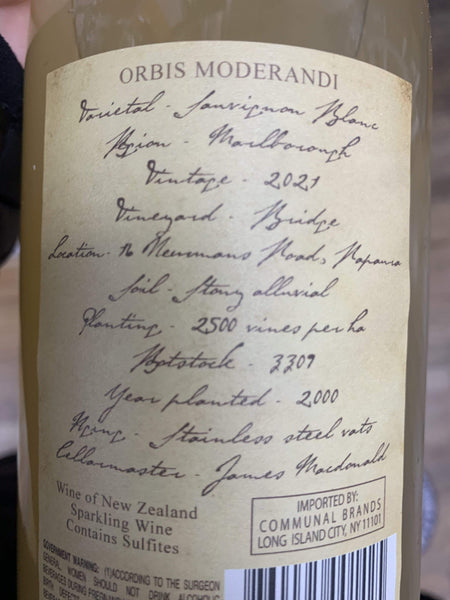 ORBIS MODERANDI
Varietal - Sauvignon Blanc
Region - Marlborough
Vintage - 2021
Vineyard - Bridge
Location - 16 Neumans Road, Rapaura
Soil - Stony alluvial
Planting - 2500 vines per ha
Rootstock - 3309
Year planted - 2000
Aging - Stainless steel vats
Cellarmaster - James Macdonald
Wine of New Zealand
Sparkling Wine
Contains Sulfites
IMPORTED BY:
COMMUNAL BRANDS
LONG ISLAND CITY, NY 11101
GOVERNMENT WARNING: (1)ACCORDING TO THE SURGEON
GENERAL, WOMEN SHOULD NOT DRINK ALCOHOLIC
BEVERAGES DURING